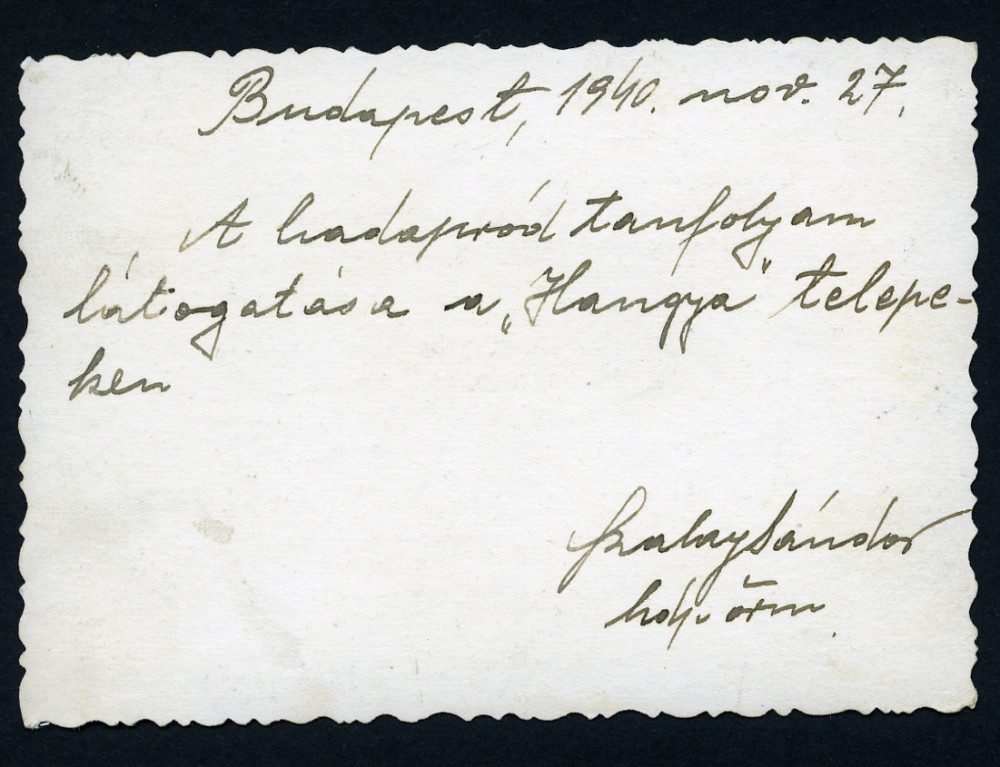 Budapest, 1940. nov. 27.
A hadapród tanfolyam
látogatása a „Hangya” telepe-
ken
Szalay Sándor
hdp. őrm.